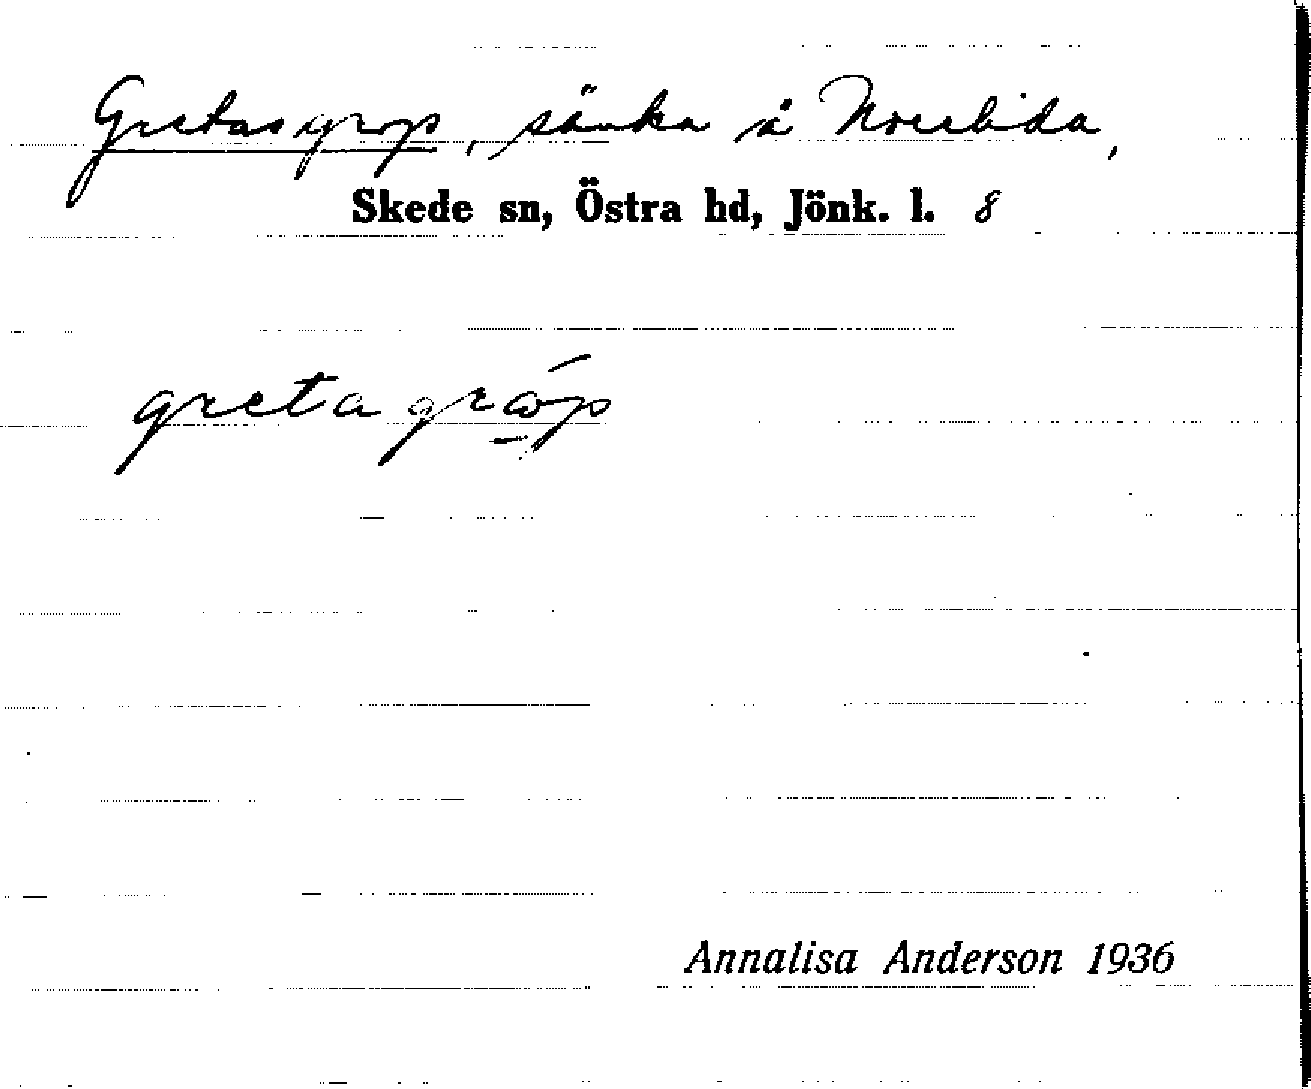 Gretasgrop, sänka å Norrlida,
Skede sn, Östra hd, Jönk. l. 8
greta gróp
Annalisa Anderson 1936